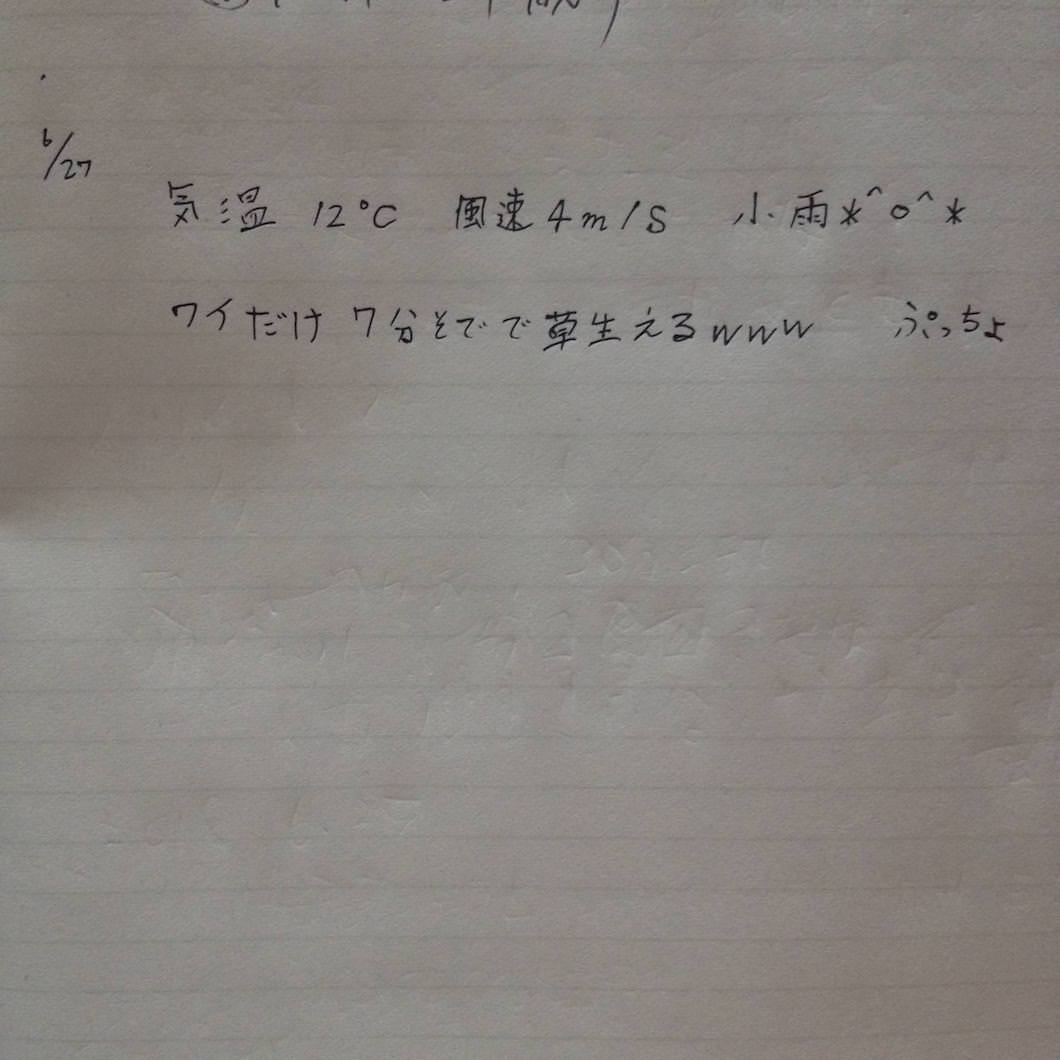 6/27
気温 12℃ 風速4m/S 小雨*^o^*
ワイだけ 7分そでで草生えるwww ぷっちょ